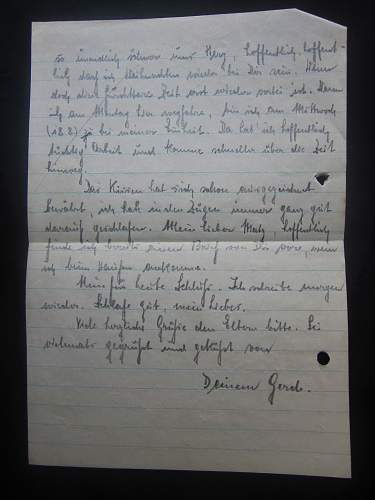 so unendlich schwer ums Herz, hoffentlich, hoffent-
lich darf ich Weihnachten wieder bei Dir sein. Wenn
doch diese furchtbare Zeit erst wieder vorbei ist. Wenn
ich am Montag hier wegfahre, bin ich am Mittwoch
(18.8) bei meiner Einheit. Da hab' ich hoffentlich
tüchtig Arbeit und komme schneller über die Zeit
hinweg.
Das Kissen hat sich schon ausgezeichnet
bewährt, ich hab in den Zügen immer ganz gut
darauf geschlafen. Mein lieber, hoffentlich
finde ich bereits einen Brief von Dir vor, wenn
ich beim Haufen ankomme.
Nun für heute Schluß. Ich schreibe morgen
wieder. Schlafe gut, mein Lieber.
Viele herzliche Grüße den Eltern bitte. Sei
vielmals gegrüßt und geküßt von
Deinem Gerd.